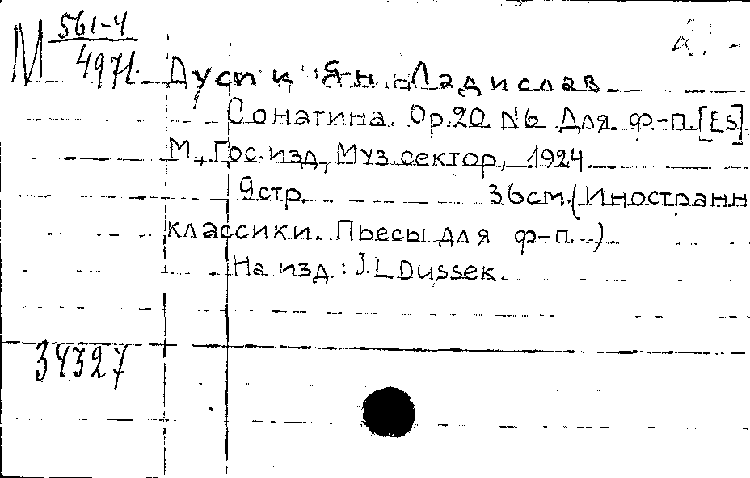 М 561-4
4971.
Дусик Ян Ладислав
Сонатина. Op.20 №6 Для ф-п. [Es]
М., Гос. изд., Муз. сектор, 1924
9 стр. 36 см. (Иностранн
классики. Пьесы для ф-п.)
На изд.: J. L. Dussek.
34327